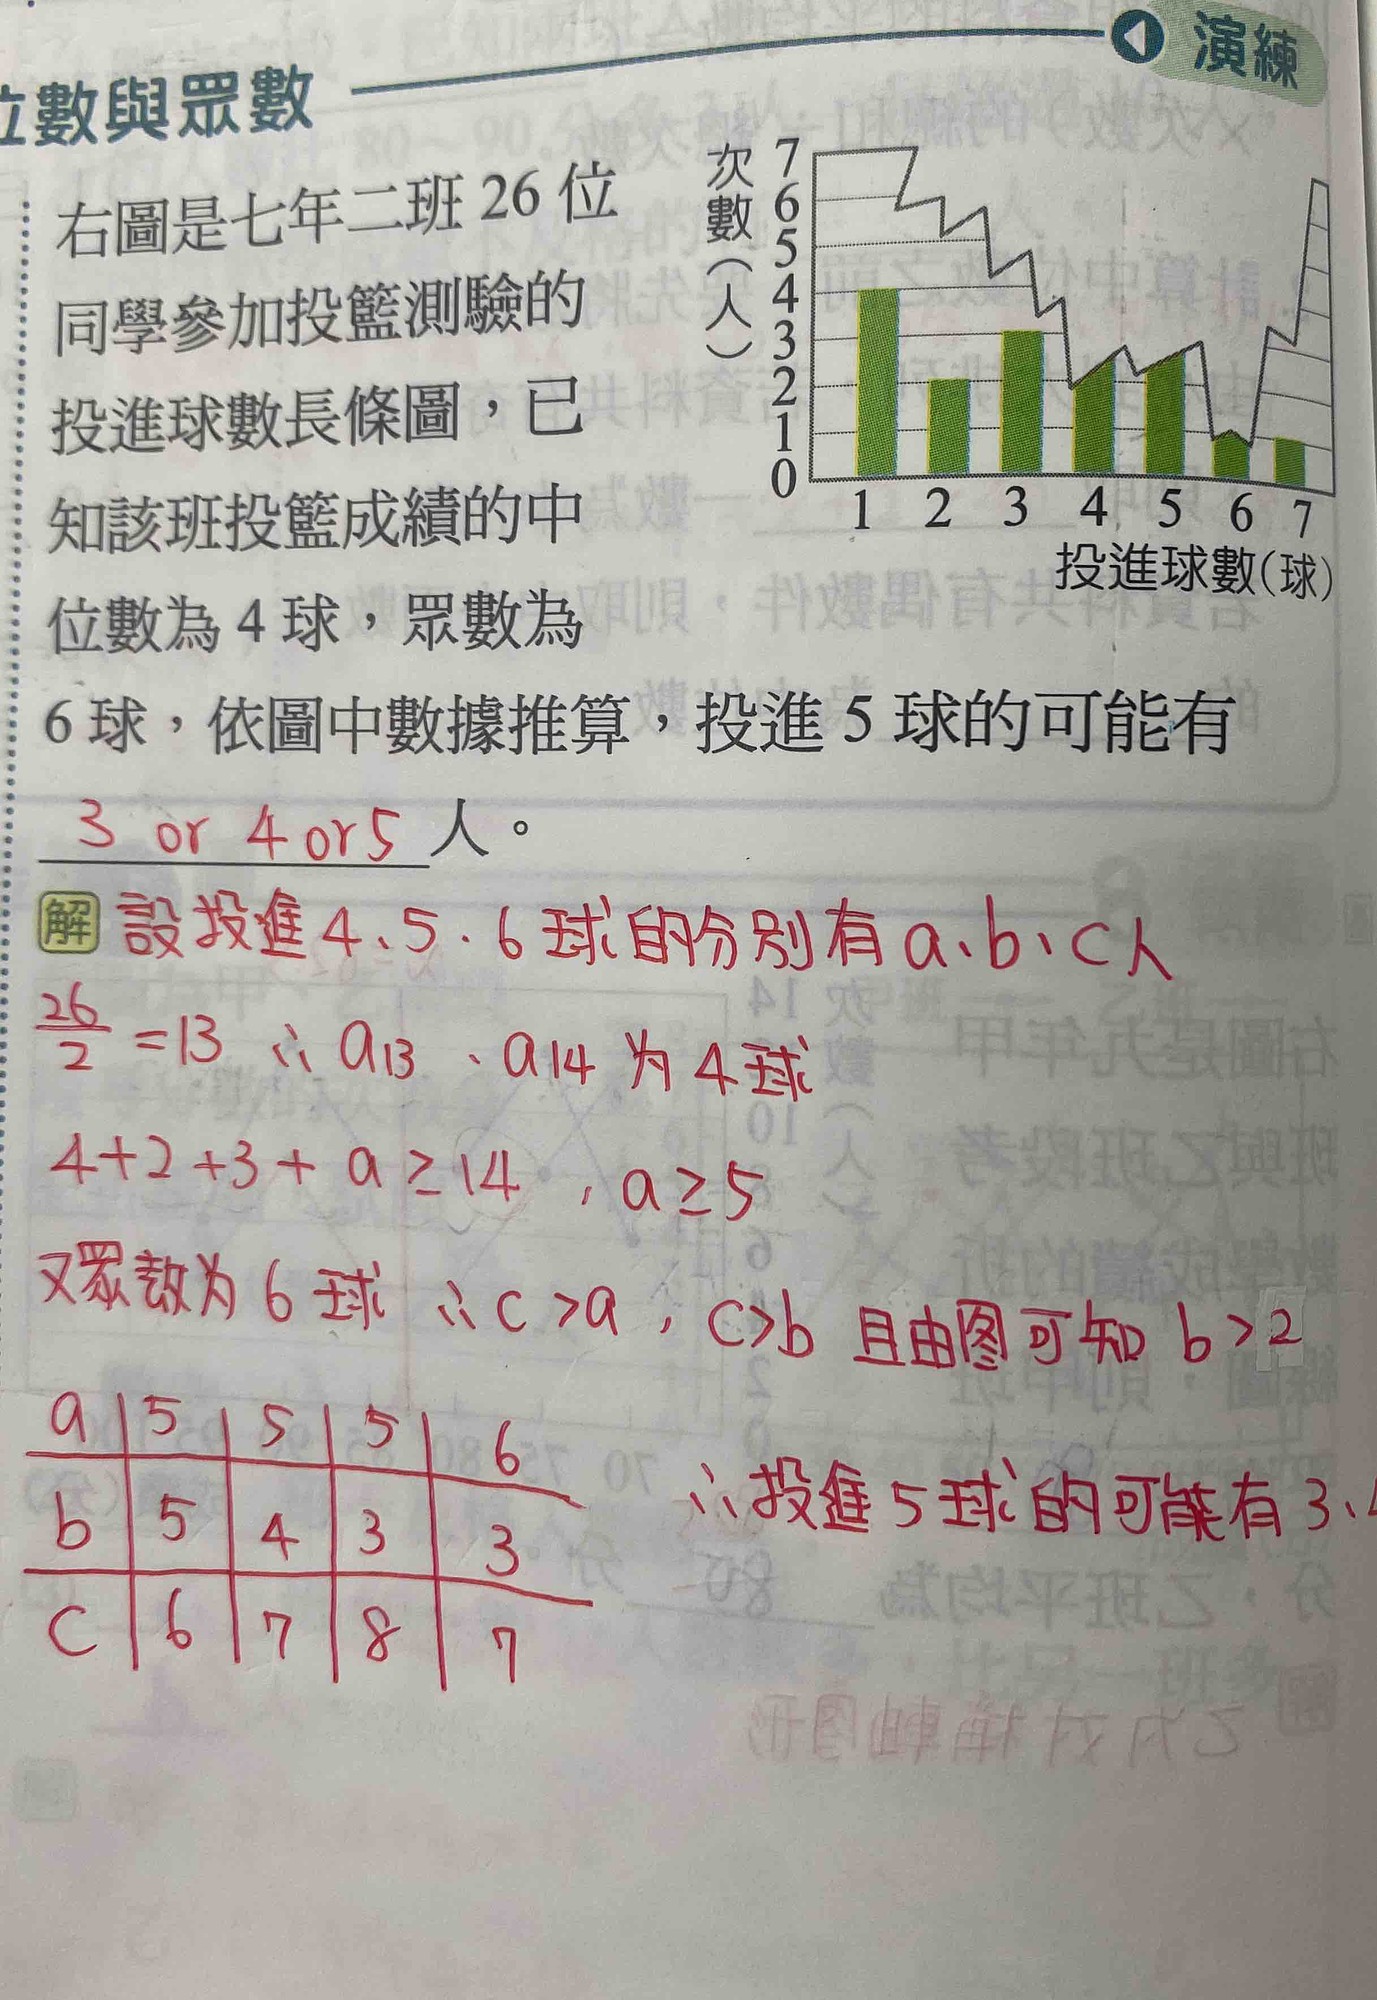 演練
位數與眾數
右圖是七年二班 26 位
同學參加投籃測驗的
投進球數長條圖，已
知該班投籃成績的中
位數為 4 球，眾數為
6 球，依圖中數據推算，投進 5 球的可能有
3 or 4 or 5 人。
次數（人）
7
6
5
4
3
2
1
0
1 2 3 4 5 6 7
投進球數(球)
解 設投進4、5、6球的分別有a、b、c人
26/2 =13 ∴ a13、a14 为 4球
4+2+3+a≥14，a≥5
又眾数为6球 ∴c>a，c>b 且由图可知 b>2
a 5 5 5 6
b 5 4 3 3
c 6 7 8 7
∴投進5球的可能有3、4